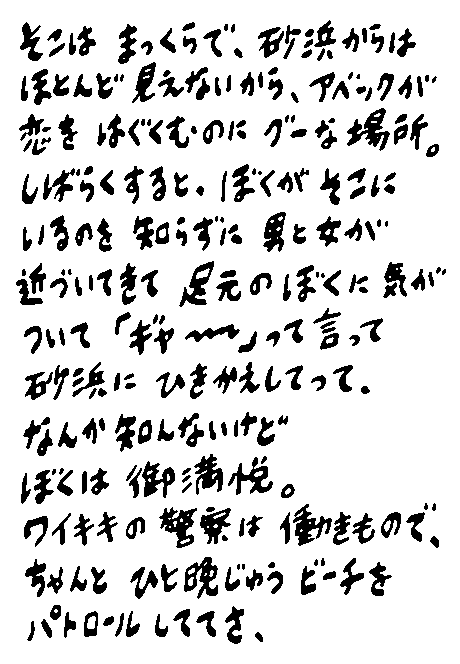 そこは まっくらで、砂浜からは
ほとんど 見えないから、アベックが
恋を はぐくむのに グーな場所。
しばらくすると、ぼくが そこに
いるのを 知らずに 男と女が
近づいてきて 足元の ぼくに 気が
ついて「ギャ〜〜」って 言って
砂浜に ひきかえしてって、
なんか知んないけど
ぼくは 御満悦。
ワイキキの 警察は 働きもので、
ちゃんと ひと晩じゅう ビーチを
パトロール しててさ、